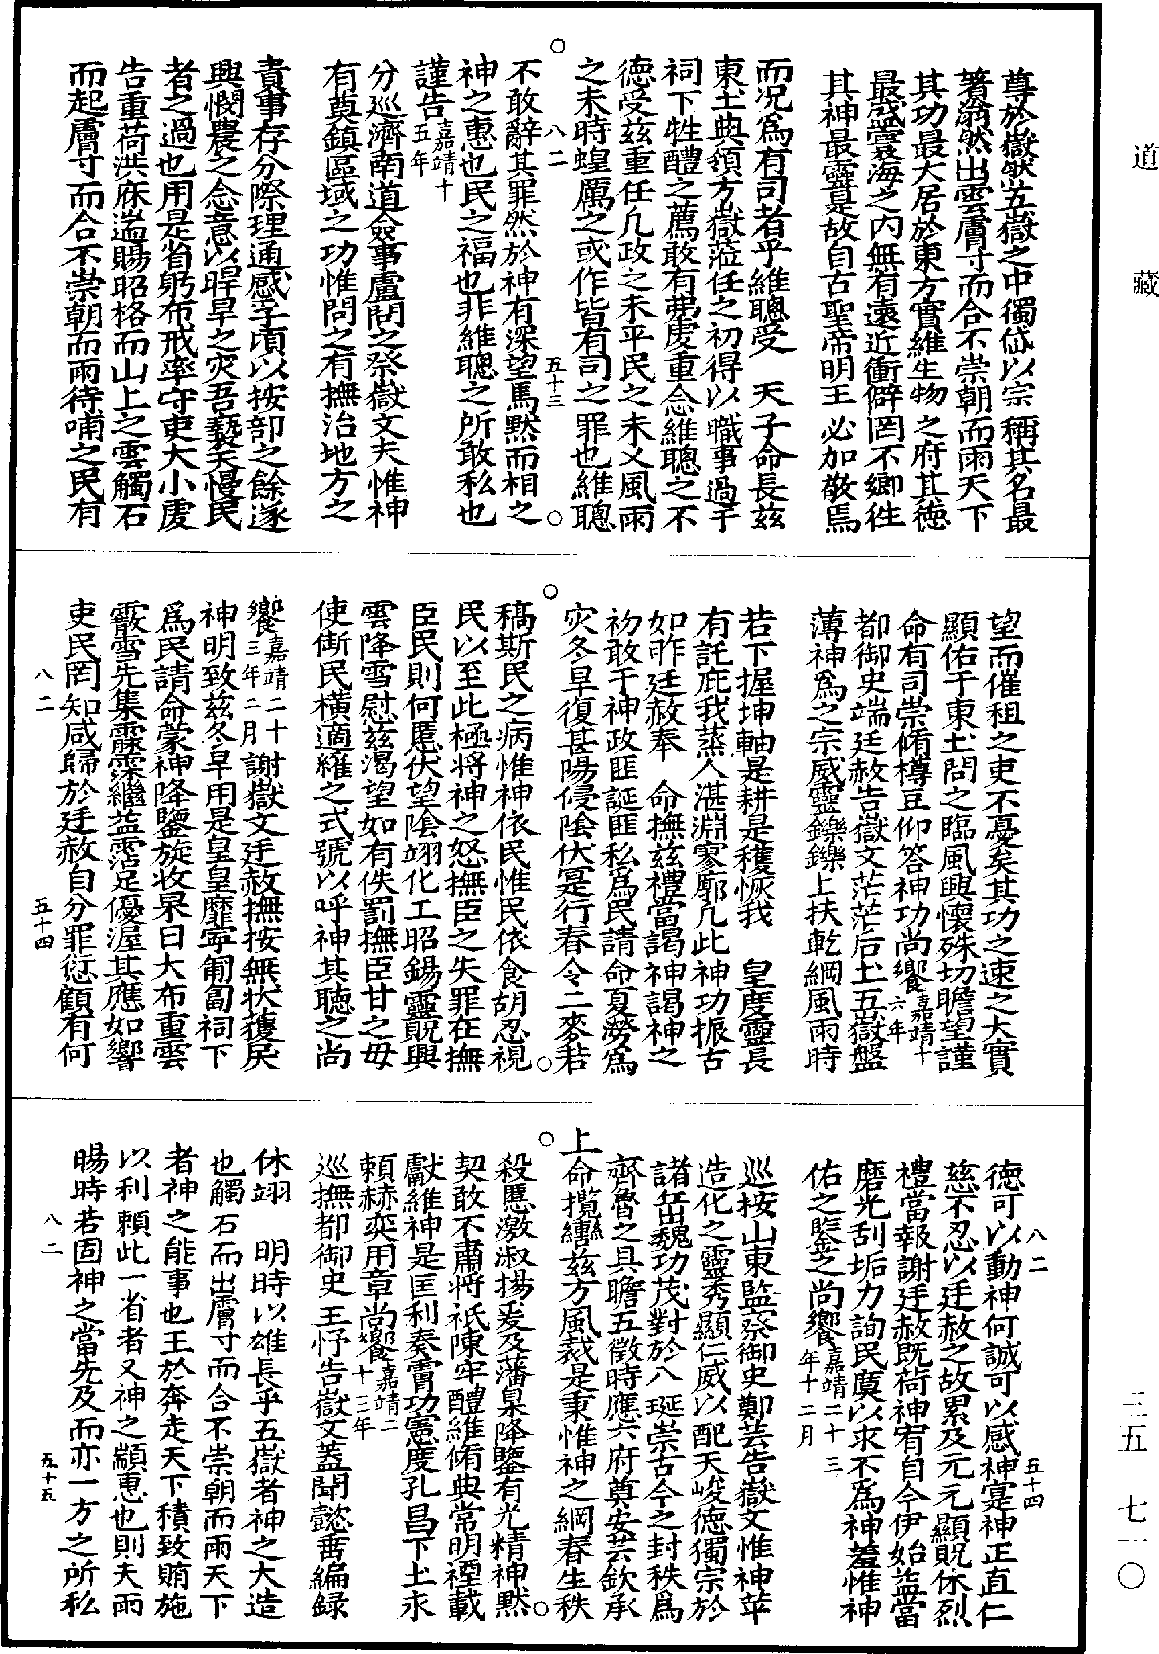 道藏
尊於嶽然五嶽之中獨岱以宗稱其名最
著翁然出雲膚寸而合不崇朝而雨天下
其功最大居於東方實維生物之府其德
最盛寰海之內無有遠近衝僻罔不鄉往
其神最靈是故自古聖帝明王必加敬焉
而況為有司者乎維聰受 天子命長茲
東土典領方嶽蒞任之初得以職事過于
祠下牲醴之薦敢有弗虔重念維聰之不
德受茲重任凡政之未平民之未乂風雨
之未時蝗厲之或作皆有司之罪也維聰
八二 五十三
不敢辭其罪然於神有深望焉默而相之
神之惠也民之福也非維聰之所敢私也
謹告嘉靖十五年
分巡濟南道僉事盧問之祭嶽文夫惟神
有奠鎮區域之功惟問之有撫治地方之
責事存分際理通感孚頃以按部之餘遂
興憫農之念意以暵旱之災吾褻天慢民
者之過也用是省躬布戒率守吏大小虔
告重荷洪庥遄賜昭格而山上之雲觸石
而起膚寸而合不崇朝而雨待哺之民有
望而催租之吏不憂矣其功之速之大實
顯佑于東土問之臨風興懷殊切瞻望謹
命有司崇脩樽豆仰答神功尚饗嘉靖十六年
都御史端廷赦告嶽文茫茫后土五嶽盤
薄神為之宗威靈鑠鑠上扶乾綱風雨時
若下握坤軸是耕是穫恢我 皇度靈長
有託庇我蒸人湛淵寥廓凡此神功振古
如昨廷赦奉 命撫茲禮當謁神謁神之
初敢于神政匪誕匪私為民請命夏澇為
災冬旱復甚陽侵陰伏寔行春令二麥若
稿斯民之病惟神依民惟民依食胡忍視
民以至此極將神之怒撫臣之失罪在撫
臣民則何慝伏望陰翊化工昭錫靈貺興
雲降雪慰茲渴望如有佚罰撫臣甘之毋
使斯民橫適罹之式號以呼神其聽之尚
饗嘉靖二十三年二月謝嶽文廷赦撫按無狀獲戾
神明致茲冬旱用是皇皇靡寧匍匐祠下
為民請命蒙神降鑒旋收杲日大布重雲
霰雪先集霡霂繼益霑足優渥其應如響
吏民罔知咸歸於廷赦自分罪愆顧有何
八二 五十四
德可以動神何誠可以感神寔神正直仁
慈不忍以廷赦之故累及元元顯貺休烈
禮當報謝廷赦既荷神宥自今伊始益當
磨光刮垢力詢民瘼以求不為神羞惟神
佑之鑒之尚饗嘉靖二十三年十二月
八二 五十四
巡按山東監察御史鄭芸告嶽文惟神莘
造化之靈秀顯仁威以配天峻德獨宗於
諸岳巍功茂對於八埏崇古今之封秩為
齊魯之具瞻五徵時應六府奠安芸欽承
上命攬轡茲方風裁是秉惟神之綱春生秩
殺慝激淑揚爰及藩臬降鑒有光精神默
契敢不肅將祇陳牢醴維脩典常明禋載
獻維神是匡利奏膚功憲度孔昌下土永
賴赫奕用章尚饗嘉靖二十三年
巡撫都御史王忬告嶽文蓋聞懿畨編錄
休翊 明時以雄長乎五嶽者神之大造
也觸石而出膚寸而合不崇朝而雨天下
者神之能事也王於奔走天下積致賄施
以利賴此一省者又神之顓惠也則夫雨
暘時若固神之當先及而亦一方之所私
八二 五十五
三五 七一〇